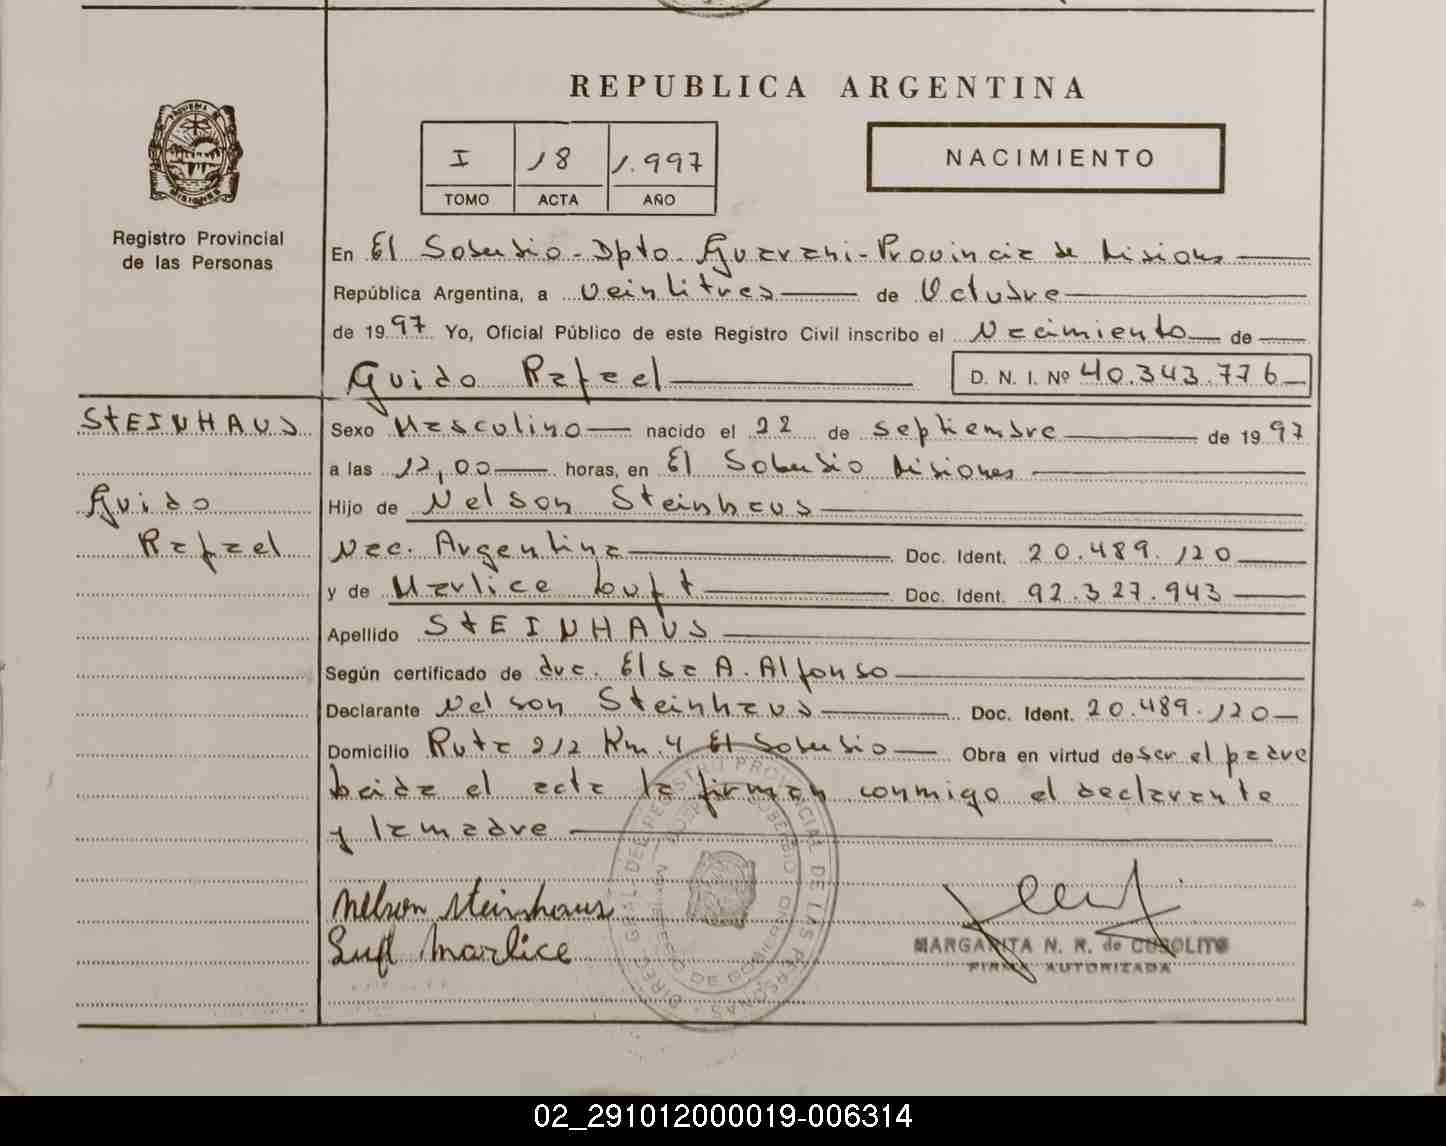 REPUBLICA ARGENTINA
I 18 1.997
TOMO ACTA AÑO
NACIMIENTO
Registro Provincial
de las Personas
En El Soberbio - Dpto. Guarani - Provincia de Misiones
República Argentina, a veintitres de Octubre
de 1997 Yo, Oficial Público de este Registro Civil inscribo el Nacimiento de
Guido Rafael D. N. I. Nº 40.343.776
STEINHAUS
Guido
Rafael
Sexo Masculino nacido el 22 de septiembre de 1997
a las 12,00 horas, en El Soberbio Misiones
Hijo de Nelson Steinhaus
Nac. Argentina Doc. Ident. 20.489.120
y de Marlice Luft Doc. Ident. 92.327.943
Apellido STEINHAUS
Según certificado de dra. Elsa A. Alfonso
Declarante Nelson Steinhaus Doc. Ident. 20.489.120
Domicilio Ruta 212 Km. 4 El Soberbio Obra en virtud de ser el padre
Leida el acta la firman conmigo el declarante
y la madre
Nelson Steinhaus
Luft Marlice
MARGARITA N. R. de CUSOLITO
FIRMA AUTORIZADA
02_291012000019-006314